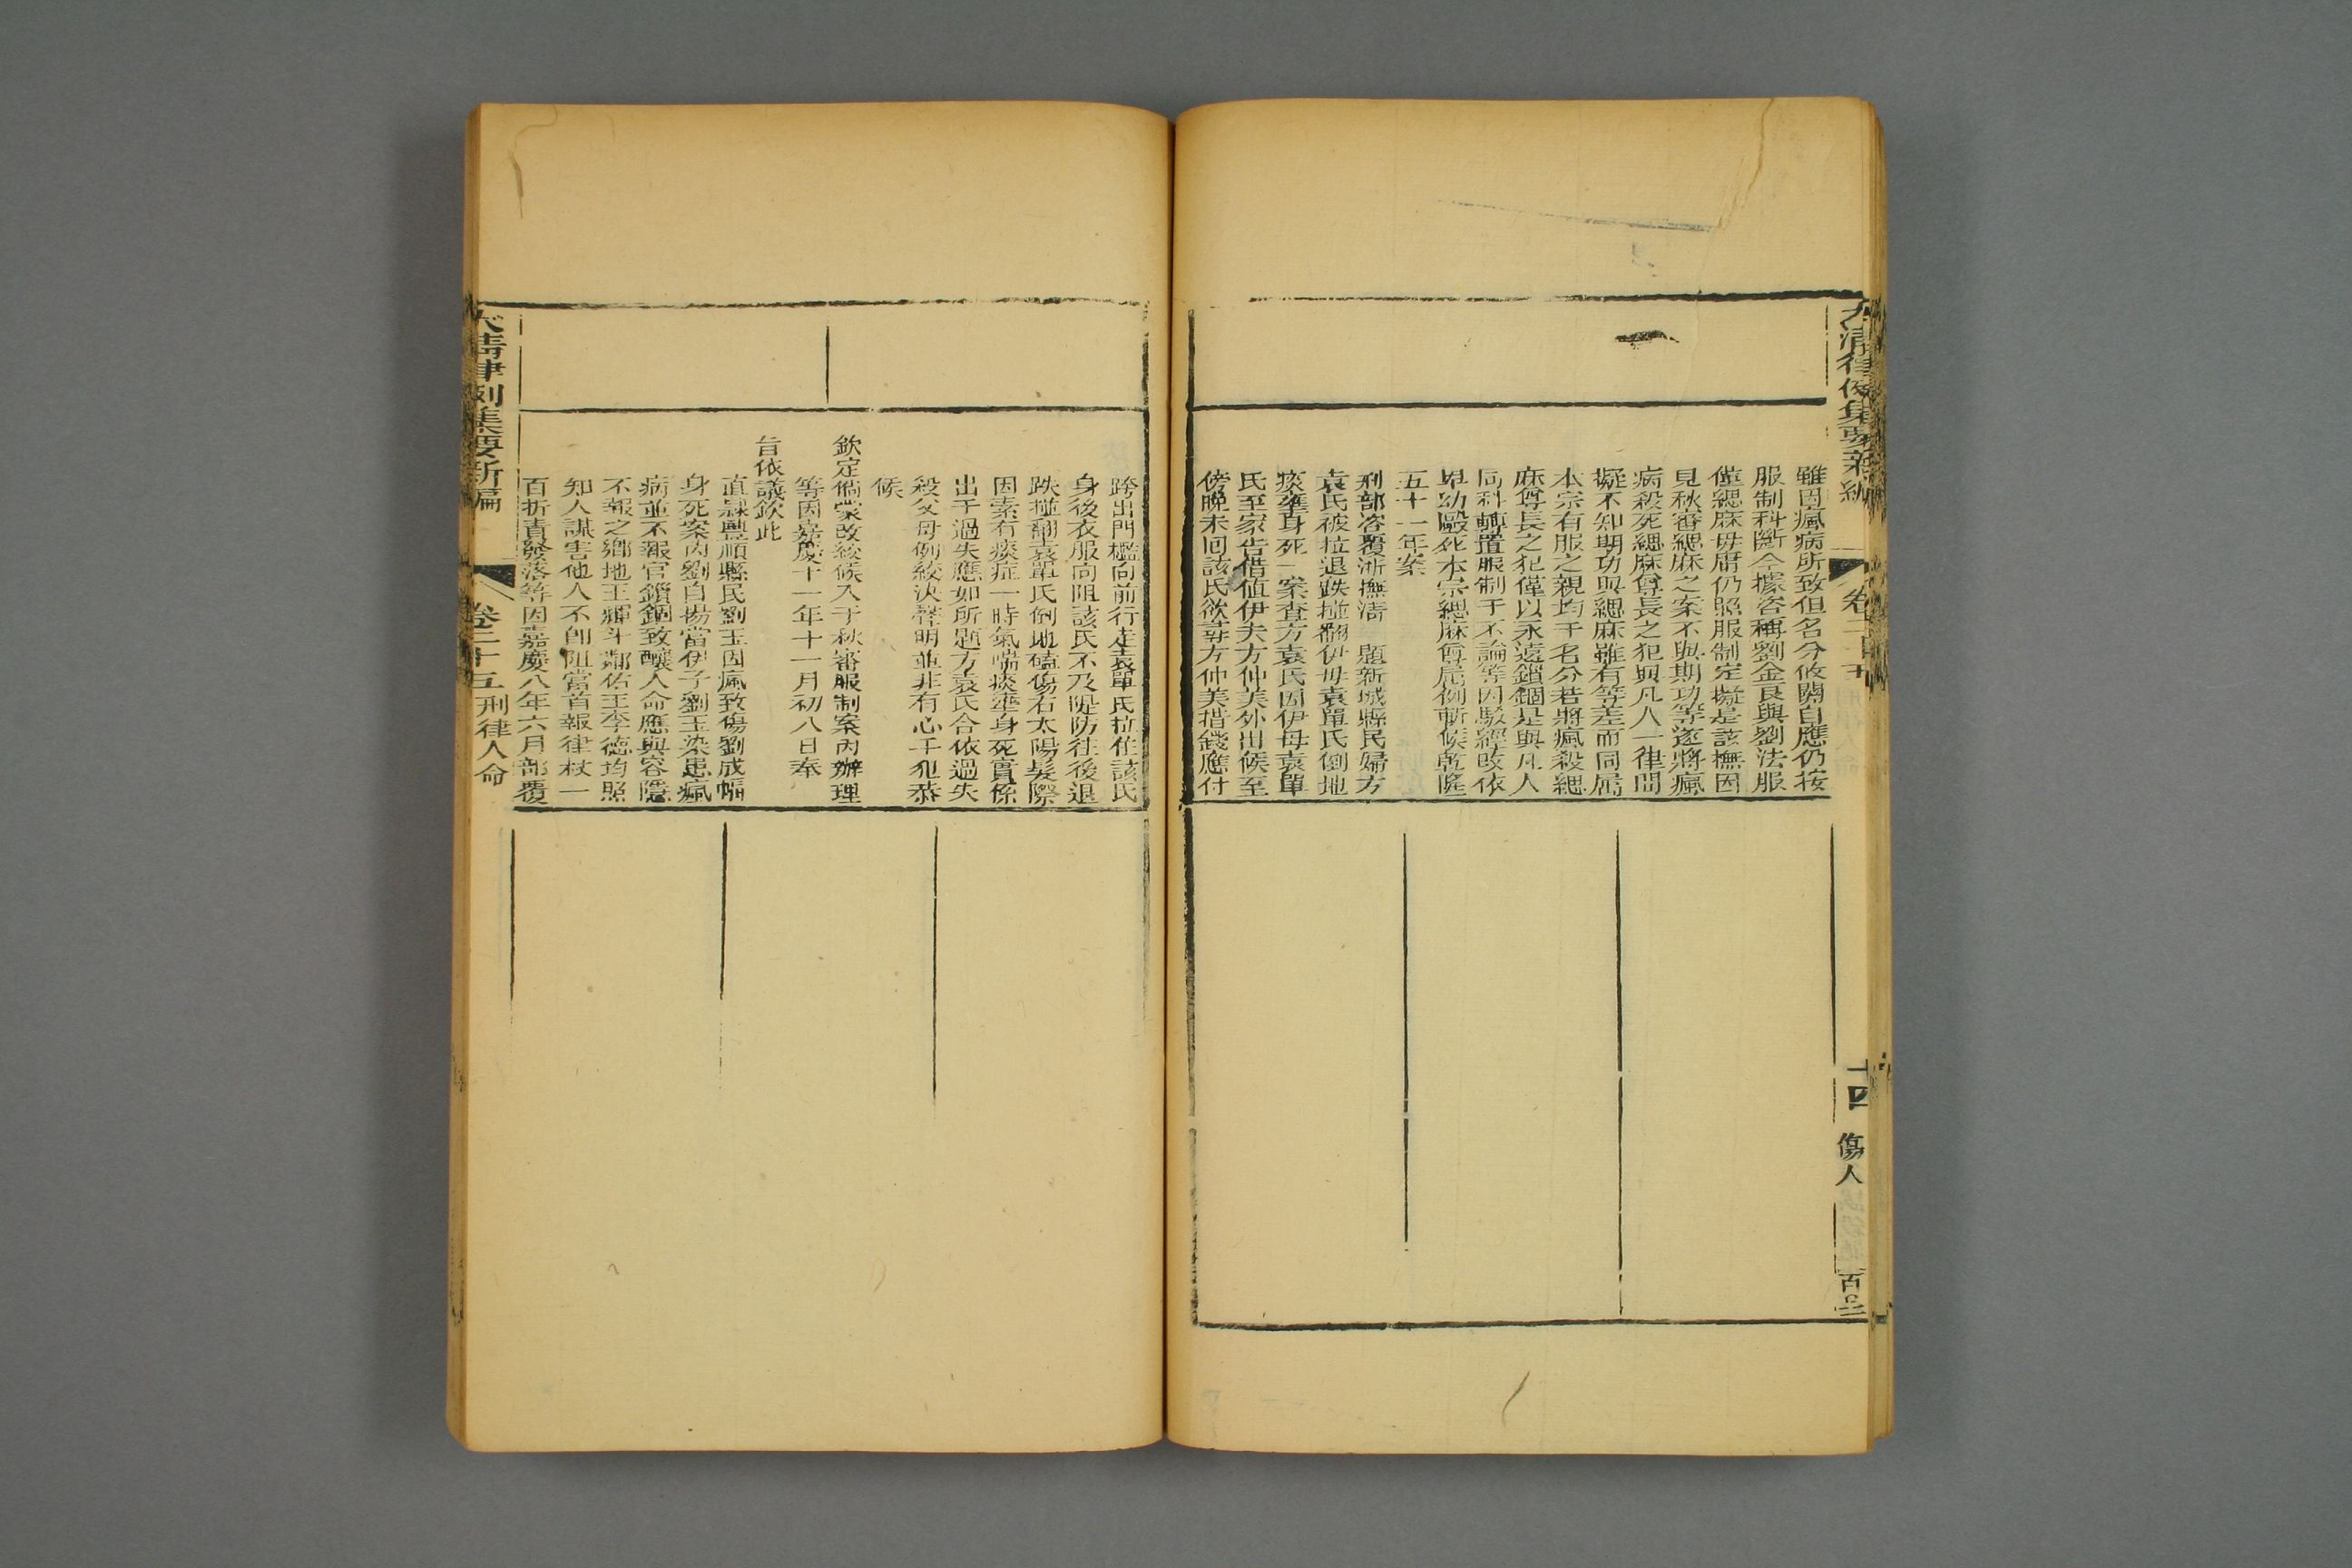 大清律例集要新編
卷二十五
十四
傷人
雖因瘋病所致但名分攸關自應仍按
服制科斷今據咨稱劉金良與劉法服
僅緦麻毋庸仍照服制定擬是該撫因
見秋審緦麻之案不與期功等遂將瘋
病殺死緦麻尊長之犯與凡人一律問
擬不知期功與緦麻雖有等差而同屬
本宗有服之親均干名分若將瘋殺緦
麻尊長之犯僅以永遠鎖錮是與凡人
同科轉置服制于不論等因駁經改依
卑幼毆死本宗緦麻尊屬例斬候乾隆
五十一年案
刑部咨覆浙撫清 題新城縣民婦方
袁氏被拉退跌碰翻伊母袁單氏倒地
痰壅身死一案查方袁氏因伊母袁單
氏至家告借值伊夫方仲美外出候至
傍晚未回該氏欲尋方仲美措錢應付
跨出門檻向前行走袁單氏拉住該氏
身後衣服向阻該氏不及隄防往後退
跌碰翻袁單氏倒地磕傷右太陽髮際
因素有痰症一時氣喘痰壅身死實係
出于過失應如所題方袁氏合依過失
殺父母例絞決聲明並非有心干犯恭
候
欽定倘蒙改絞候入于秋審服制案內辦理
等因嘉慶十一年十一月初八日奉
旨依議欽此
直隸豐順縣民劉玉因瘋致傷劉成幅
身死案內劉自揚當伊子劉玉染患瘋
病並不報官鎖錮致釀人命應與容隱
不報之鄉地王輝斗鄰佑王李德均照
知人謀害他人不即阻當首報律杖一
百折責發落等因嘉慶八年六月部覆
大清律例集要新編
卷二十五
刑律人命